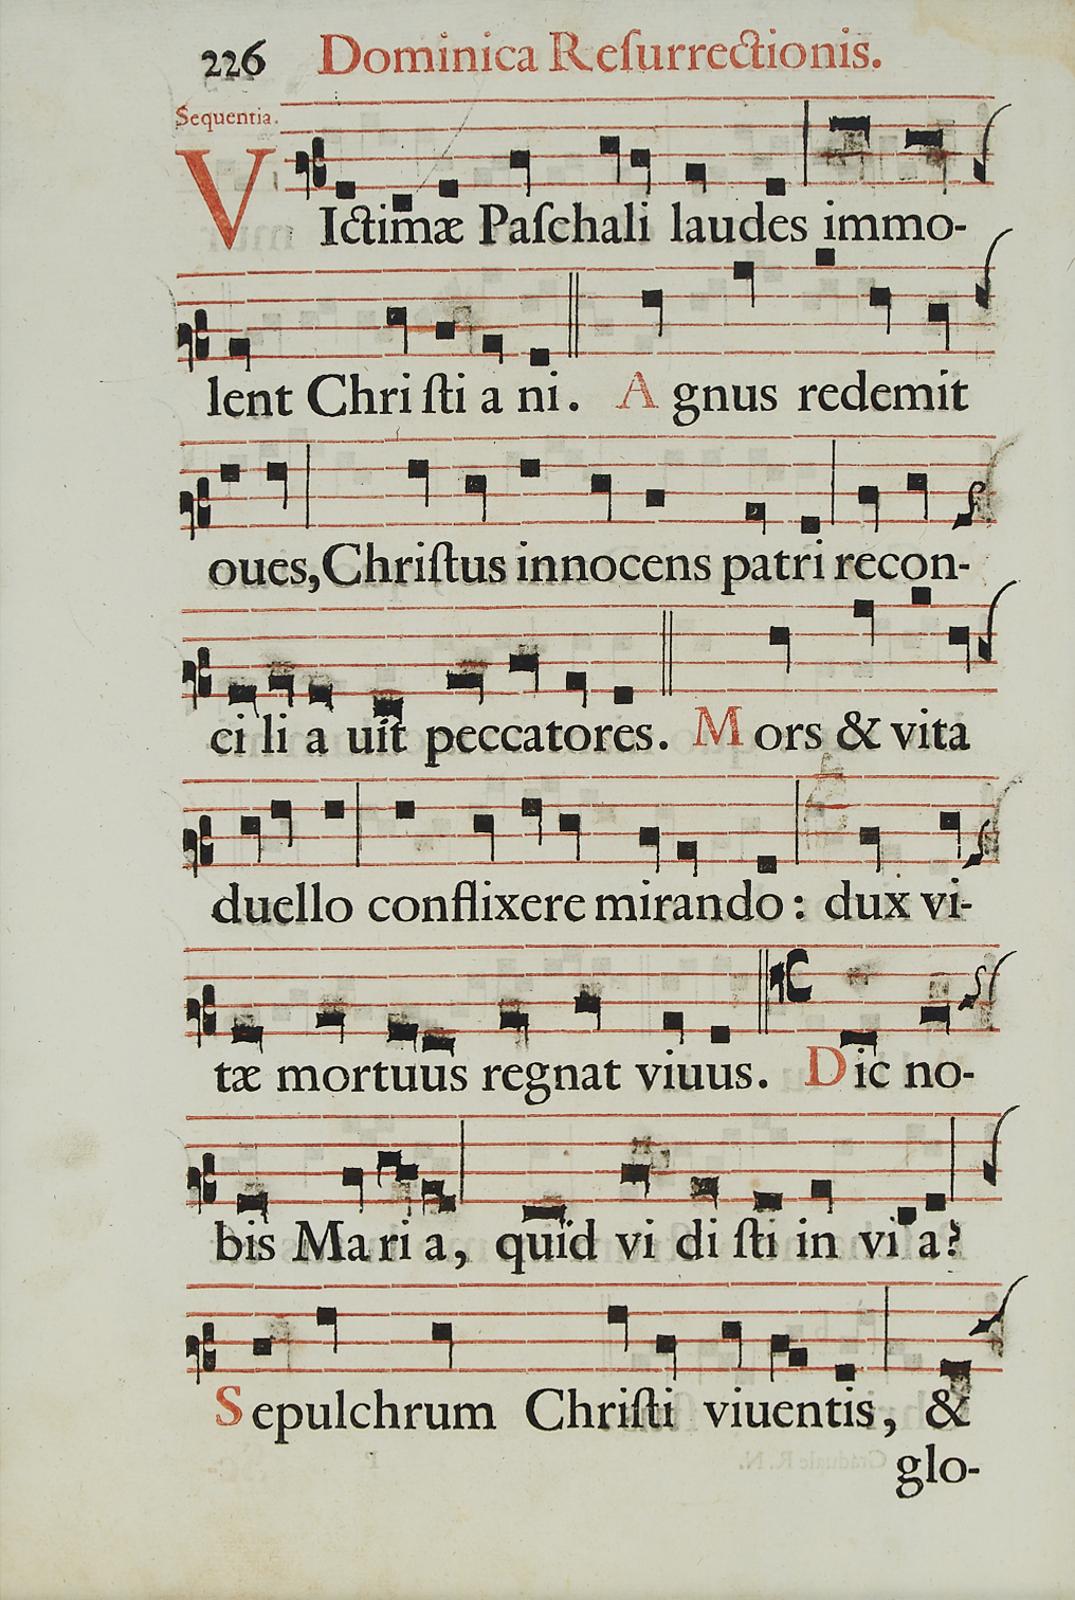 226 Dominica Reſurrectionis.
Sequentia.
VIctimæ Paſchali laudes immo-
lent Chri ſti a ni. A gnus redemit
oues, Chriſtus innocens patri recon-
ci li a uit peccatores. M ors & vita
duello conflixere mirando : dux vi-
tæ mortuus regnat viuus. D ic no-
bis Ma ri a, quid vi di ſti in vi a?
S epulchrum Chriſti viuentis, &
glo-